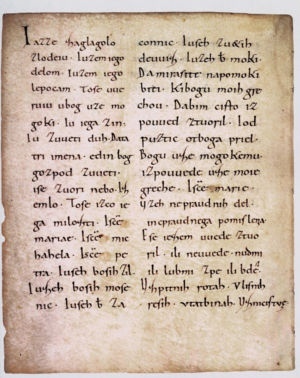 Iazze zaglagolo
zlodeiu · Iuzem iego
delom · Iuzem iego
lepocam · Tose uue
ruiu ubog uze mo
goki · Iu iega zin ·
Iu zuueti duh · Data
tri imena · edin bog
gozpod zuueti ·
ise zuori nebo · Iz
emlo · Tose izco ie
ga milosti · Iscē
mariae · Iscē mic
hahela · Iscē pe
tra · Iuseh bosih zil ·
Iuseh bosih mose
nic · Iuseh b̄ za
connic · Iuseh zuetih
deuuiz · Iuzeh b̄ moki ·
Da mi rasite napomoki
biti · Kibogu moih gre
chou · Dabim cisto iz
pouued ztuoril · Iod
puztic otboga priel ·
Bogu uze mogokemu
izpouuede uze moie
greche · Iscē marie ·
Uzeh nepraudnih del ·
inepraudnega pomislera
Ese iezem uuede ztuo
ril · ili neuuede · nudmi
ili lubmi zpe · ili bdē
Uzpitnih rotah · Vlisnih
resih · Vtatbinah · Uzmectuoe